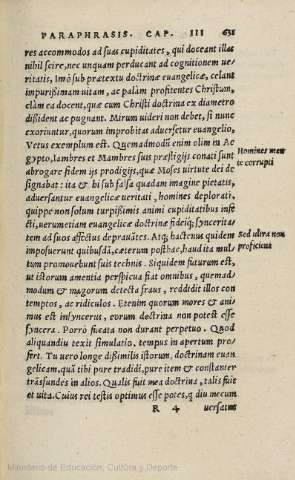 PARAPHRASIS. CAP. III 631
res accommodos ad suas cupiditates, qui doceant illas
nihil scire, nec unquam perducant ad cognitionem ue-
ritatis, Imò sub prætextu doctrinæ euangelicæ, celant
impurißimam uitam, ac palàm profitentes Christum,
clàm ea docent, quæ cum Christi doctrina ex diametro
dißident ac pugnant. Mirum uideri non debet, si nunc
exoriuntur, quorum improbitas aduersetur euangelio,
Vetus exemplum est. Quemadmodũ enim olim in Ae
gypto, Iambres et Mambres suis præstigijs conati sunt
abrogare fidem ijs prodigijs, quæ Moses uirtute dei de
signabat: ita & hi sub falsa quadam imagine pietatis,
aduersantur euangelicæ ueritati, homines deplorati,
quippe non solum turpißimis animi cupiditatibus infe
cti, uerumetiam euangelicæ doctrinæ fideiq́; synceritas
tem ad suos affectus deprauãtes. Atq́; hactenus quidem
imposuerunt quibusdã, cæterum posthac, haud ita mul-
tum promouebunt suis technis. Siquidem futurum est,
ut istorum amentia perspicua fiat omnibus, quemad-
modum & magorum detecta fraus, reddidit illos con
temptos, ac ridiculos. Etenim quorum mores & ani-
mus est insyncerus, eorum doctrina non potest esse
syncera. Porrò fucata non durant perpetuo. Quod
aliquandiu texit simulatio, tempus in apertum pro-
fert. Tu uero longe dißimilis istorum, doctrinam euan
gelicam, quã tibi pure tradidi, pure item & constanter
trãsfundis in alios. Qualis fuit mea doctrina, talis fuit
et uita. Cuius rei testis optimus esse potes, q́ diu mecum
R 4 uersatus
Homines men
te corrupti
Sed ultra non
proficient
Ministerio de Educación, Cultura y Deporte